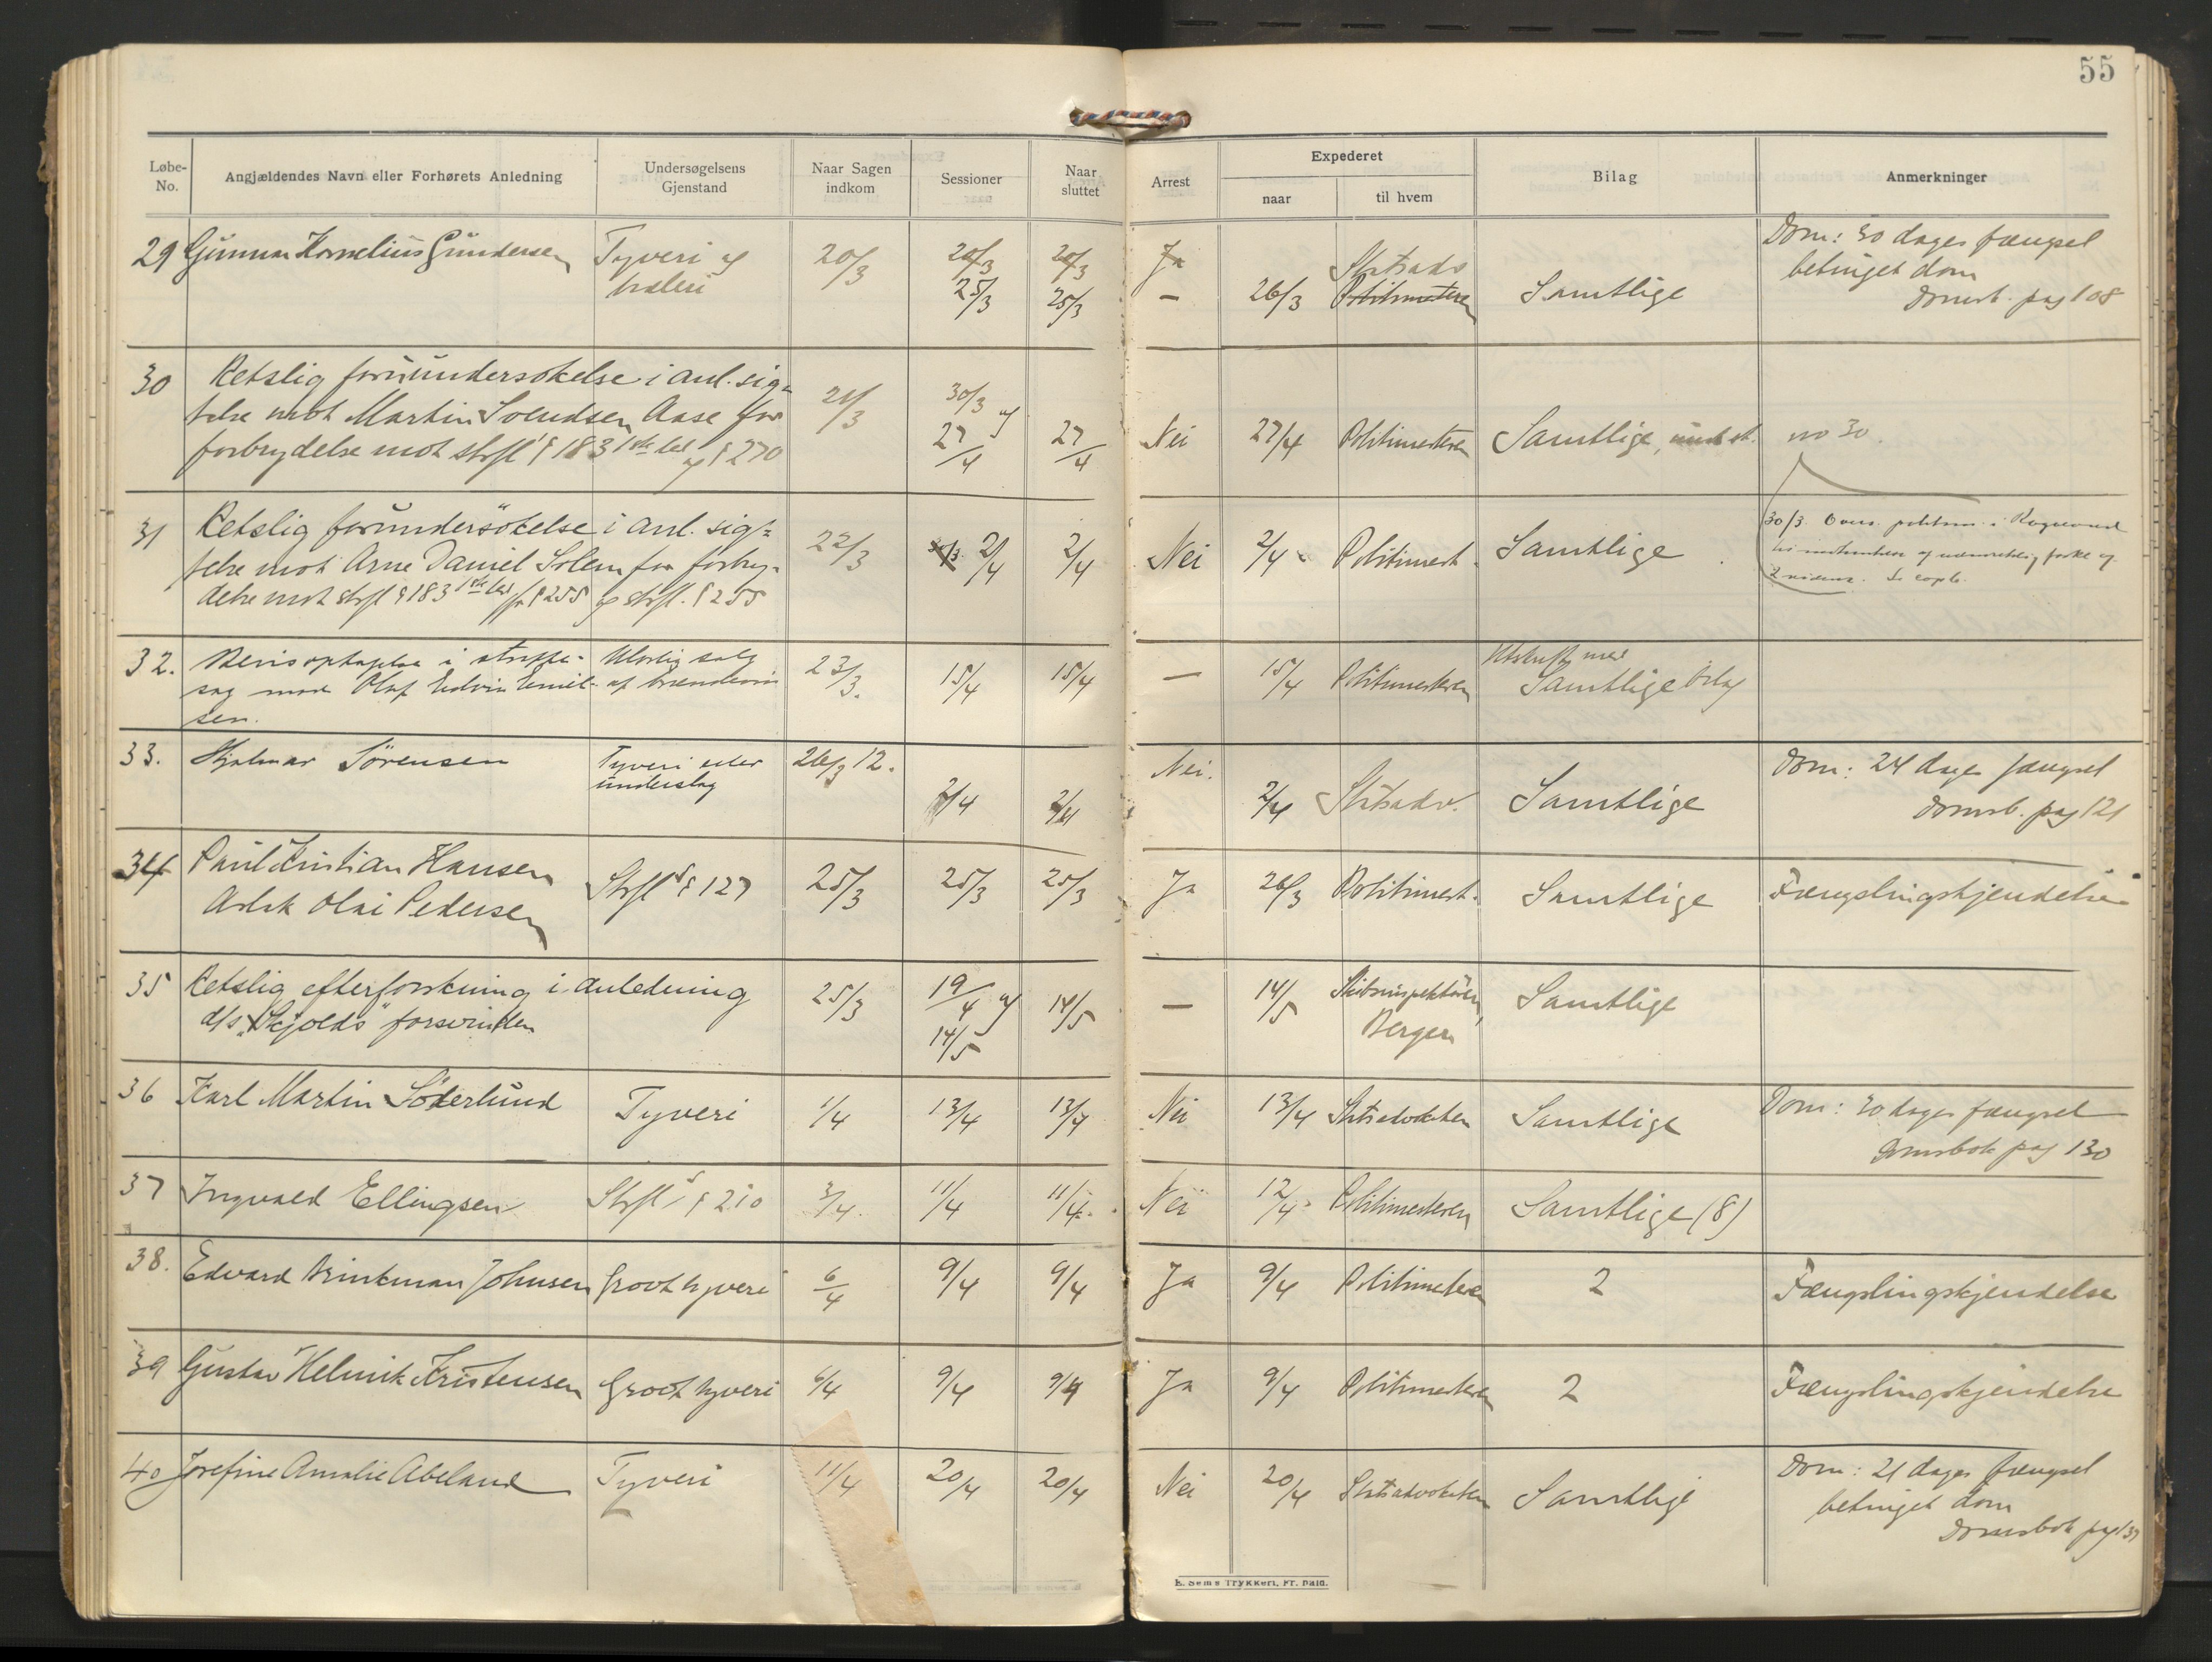 55
Løbe-No. Angjældendes Navn eller Forhørets Anledning Undersøgelsens Gjenstand Naar Sagen indkom Sessioner Naar sluttet Arrest Expederet naar til hvem Bilag Anmerkninger
29 Gunnar Kornelius Gundersen Tyveri og 20/3 20/3 20/3 Ja Statsadv Dom: 30 dages fængsel
hæleri 25/3 25/3 — 26/3 Politimesteren Samtlige betinget dom
Domsb. pag 108
30 Retslig forundersøkelse i anl. sig-
telse mot Martin Svendsen Aase for 21/3 30/3 og
forbrydelse mot strfl § 183 1ste led og § 270 27/4 27/4 Nei 27/4 Politimesteren Samtlige, no 30.
31 Retslig forundersökelse i anl. sig-
telse mot Arne Daniel Solem for forbry- 22/3 2/4 2/4 Nei 2/4 Politimest. Samtlige 30/3
delse mot strfl § 183 1ste led § 255 og strfl. § 255
32. Bevisoptagelse i straffe- Ulovlig salg 23/3. 15/4 15/4 — 15/4 Politimesteren Utskrift med
sag mod Olaf Edvin Emil- af brændevin Samtlige bilag
sen.
33. Hjalmar Sörensen Tyveri eller 26/3 12. Nei. Dom: 24 dages fængsel
underslag 2/4 2/4 2/4 Statsadv. Samtlige Domsb. pag 121
34 Paul Kristian Hansen Strfl's § 127 25/3 25/3 25/3 Ja 26/3 Politimest. Samtlige Fængslingskjendelse
Aslak Olai Pedersen
35 Retslig efterforskning i anledning 25/3 19/4 og 14/5 — 14/5 Skibsinspektören, Samtlige
d/s "Skjolds" forsvinden 14/5 Bergen
36 Karl Martin Söderlund Tyveri 1/4 13/4 13/4 Nei 13/4 Statsadvokaten Samtlige Dom: 30 dages fængsel
Domsbok pag 130
37 Ingvald Ellingsen Strfl's § 210 3/4. 11/4 11/4. Nei 12/4 Politimesteren Samtlige (8)
38. Edvard Brinkman Johnsen Grovt tyveri 6/4 9/4 9/4 Ja 9/4 Politimesteren 2 Fængslingskjendelse
39 Gustav Helmik Kristensen Grovt tyveri 6/4 9/4 9/4 Ja 9/4 Politimesteren 2 Fængslingskjendelse
40 Josefine Amalie Abeland Tyveri 11/4 20/4 20/4 Nei 20/4 Statsadvokaten Samtlige Dom: 21 dages fængsel
betinget dom
Domsbok pag 137
E. Sem's Trykkeri, Fr.hald.